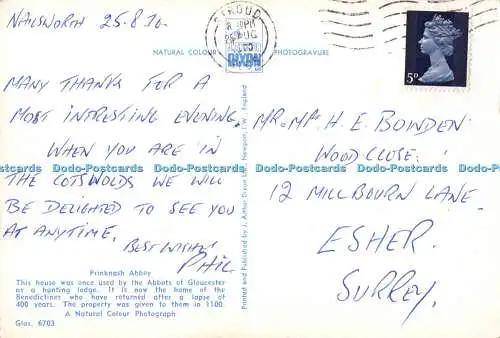 NAILSWORTH 25.8.70
MANY THANKS FOR A
MOST INTRESTING EVENING.
WHEN YOU ARE IN
THE COTSWOLDS WE WILL
BE DELIGHTED TO SEE YOU
AT ANYTIME.
BEST WISHES
PHIL
Prinknash Abbey
This house was once used by the Abbots of Gloucester
as a hunting lodge. It is now the home of the
Benedictines who have returned after a lapse of
400 years. The property was given to them in 1100.
A Natural Colour Photograph
Glos. 6703
NATURAL COLOUR
PHOTOGRAVURE
DIXON
Printed and Published by J. Arthur Dixon Ltd., Newport, I.W., England
STROUD
5P
MR. MRS H. E. BOWDEN
WOOD CLOSE.
12 MILLBOURN LANE.
ESHER.
SURREY.
Dodo-Postcards Dodo-Postcards Dodo-Postcards Dodo-Postcards